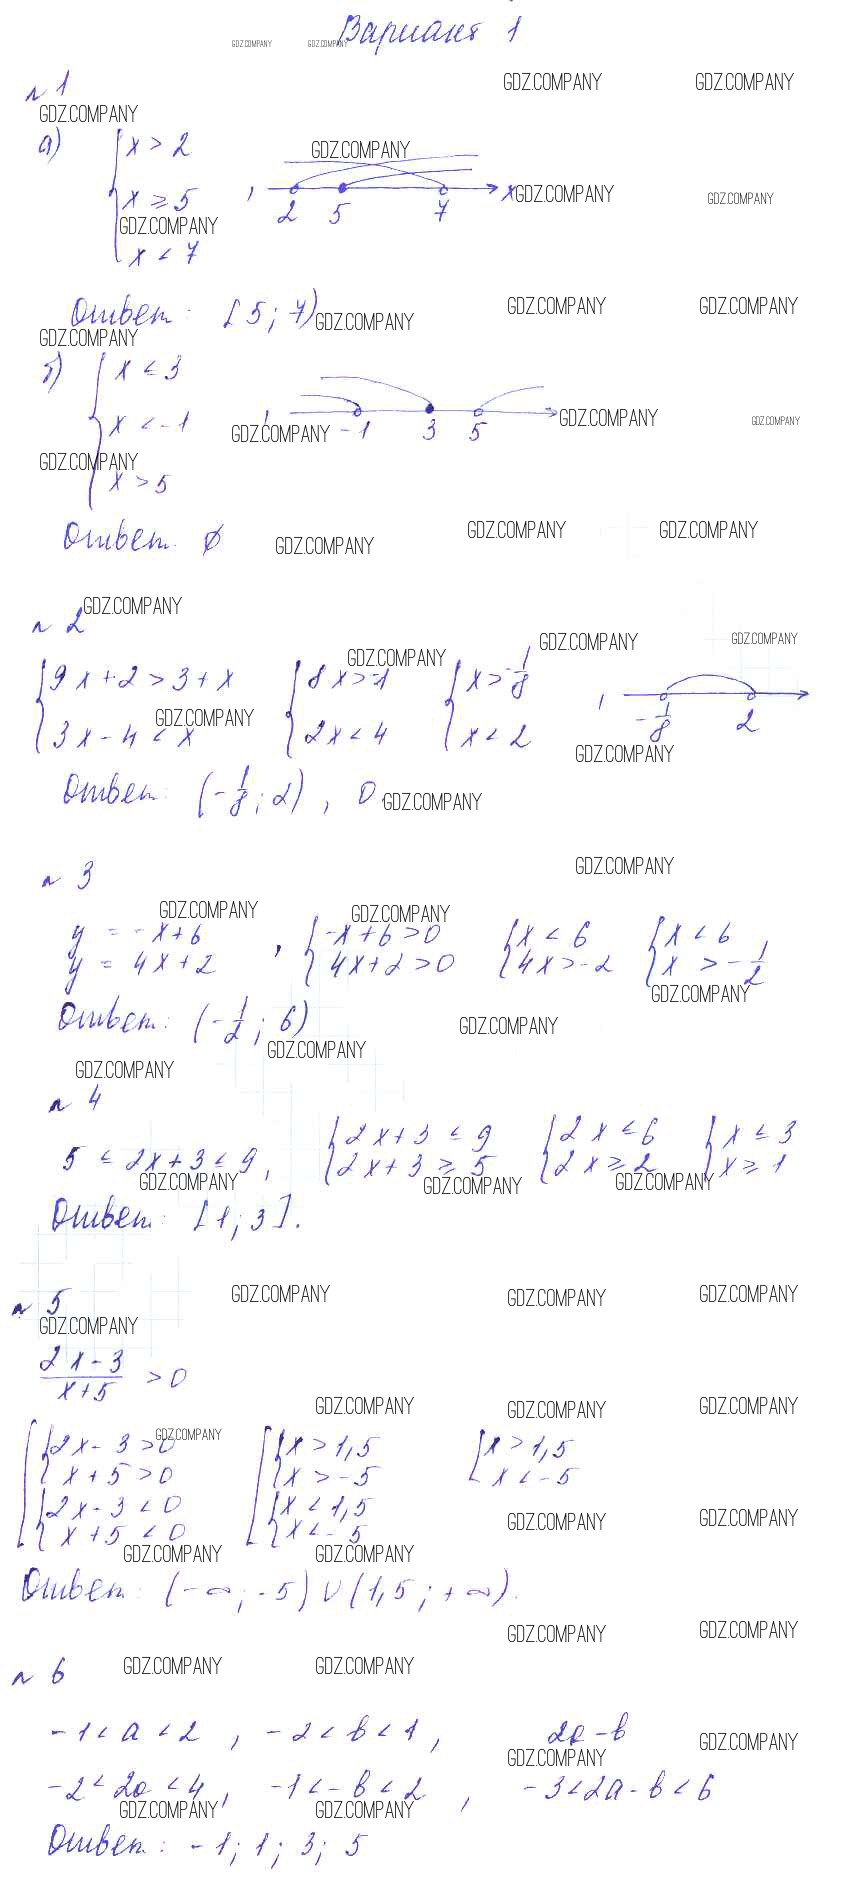 Вариант 1
GDZ.COMPANY GDZ.COMPANY
№ 1
GDZ.COMPANY GDZ.COMPANY
GDZ.COMPANY
а) x > 2
GDZ.COMPANY
x ≥ 5 , 2 5 7 x
GDZ.COMPANY GDZ.COMPANY
GDZ.COMPANY
x < 7
Ответ: [5; 7)
GDZ.COMPANY GDZ.COMPANY GDZ.COMPANY
GDZ.COMPANY
б) x ≤ 3
x < -1 , -1 3 5
GDZ.COMPANY GDZ.COMPANY GDZ.COMPANY
GDZ.COMPANY
x > 5
Ответ: ∅
GDZ.COMPANY GDZ.COMPANY GDZ.COMPANY
GDZ.COMPANY
№ 2
GDZ.COMPANY GDZ.COMPANY GDZ.COMPANY
9x + 2 > 3 + x 8x > -1 x > -1/8
GDZ.COMPANY
3x - 4 < x 2x < 4 x < 2 , -1/8 2
GDZ.COMPANY
Ответ: (-1/8; 2), 0.
GDZ.COMPANY
№ 3
GDZ.COMPANY
GDZ.COMPANY GDZ.COMPANY
y = -x+6 , -x+6 > 0 x < 6 x < 6
y = 4x+2 4x+2 > 0 4x > -2 x > -1/2
GDZ.COMPANY
Ответ: (-1/2; 6)
GDZ.COMPANY
GDZ.COMPANY
GDZ.COMPANY
№ 4
5 ≤ 2x+3 ≤ 9, 2x+3 ≤ 9 2x ≤ 6 x ≤ 3
2x+3 ≥ 5 2x ≥ 2 x ≥ 1
GDZ.COMPANY GDZ.COMPANY GDZ.COMPANY
Ответ: [1; 3].
№ 5
GDZ.COMPANY GDZ.COMPANY GDZ.COMPANY
GDZ.COMPANY
2x - 3
x+5 > 0
GDZ.COMPANY GDZ.COMPANY GDZ.COMPANY
GDZ.COMPANY
2x - 3 > 0 x > 1,5 x > 1,5
x + 5 > 0 x > -5 x < -5
2x - 3 < 0 x < 1,5
x + 5 < 0 x < -5
GDZ.COMPANY GDZ.COMPANY
GDZ.COMPANY GDZ.COMPANY
Ответ: (-∞; -5) ∪ (1,5; +∞).
GDZ.COMPANY GDZ.COMPANY
№ 6
GDZ.COMPANY GDZ.COMPANY
-1 < a < 2 , -2 < b < 1 , 2a - b
GDZ.COMPANY GDZ.COMPANY
-2 < 2a < 4, -1 < -b < 2 , -3 < 2a - b < 6
GDZ.COMPANY GDZ.COMPANY
Ответ: -1; 1; 3; 5